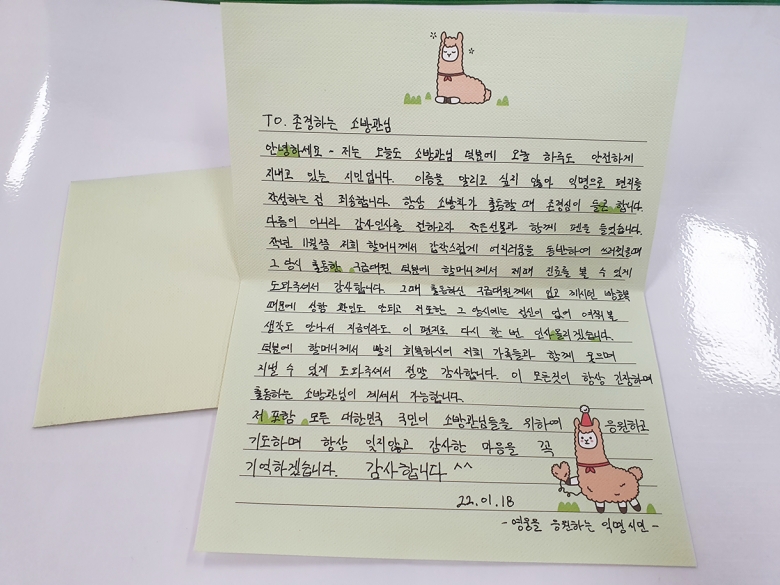 TO. 존경하는 소방관님
안녕하세요~ 저는 오늘도 소방관님 덕분에 오늘 하루도 안전하게
지내고 있는 시민입니다. 이름을 알리고 싶지 않아 익명으로 편지를
작성하는 점 죄송합니다. 항상 소방차가 출동할 때 존경심이 들곤 합니다.
다름이 아니라 감사인사를 전하고자 작은선물과 함께 펜을 들었습니다.
작년 11월쯤 저희 할머니께서 갑작스럽게 어지러움을 동반하여 쓰러졌을때
그 당시 출동한 구급대원 덕분에 할머니께서 제때 진료를 볼 수 있게
도와주셔서 감사합니다. 그때 출동하신 구급대원께서 입고 계시던 방호복
때문에 성함 확인도 안되고 저또한 그 당시에는 정신이 없어 여쭤볼
생각도 안나서 지금이라도 이 편지로 다시 한 번 인사올리겠습니다.
덕분에 할머니께서 빨리 회복하시어 저희 가족들과 함께 웃으며
지낼 수 있게 도와주셔서 정말 감사합니다. 이 모든것이 항상 긴장하며
출동하는 소방관님이 계셔서 가능합니다.
저 포함 모든 대한민국 국민이 소방관님들을 위하여 응원하고
기도하며 항상 잊지않고 감사한 마음을 꼭
기억하겠습니다. 감사합니다 ^^
22.01.18
-영웅을 응원하는 익명시민-